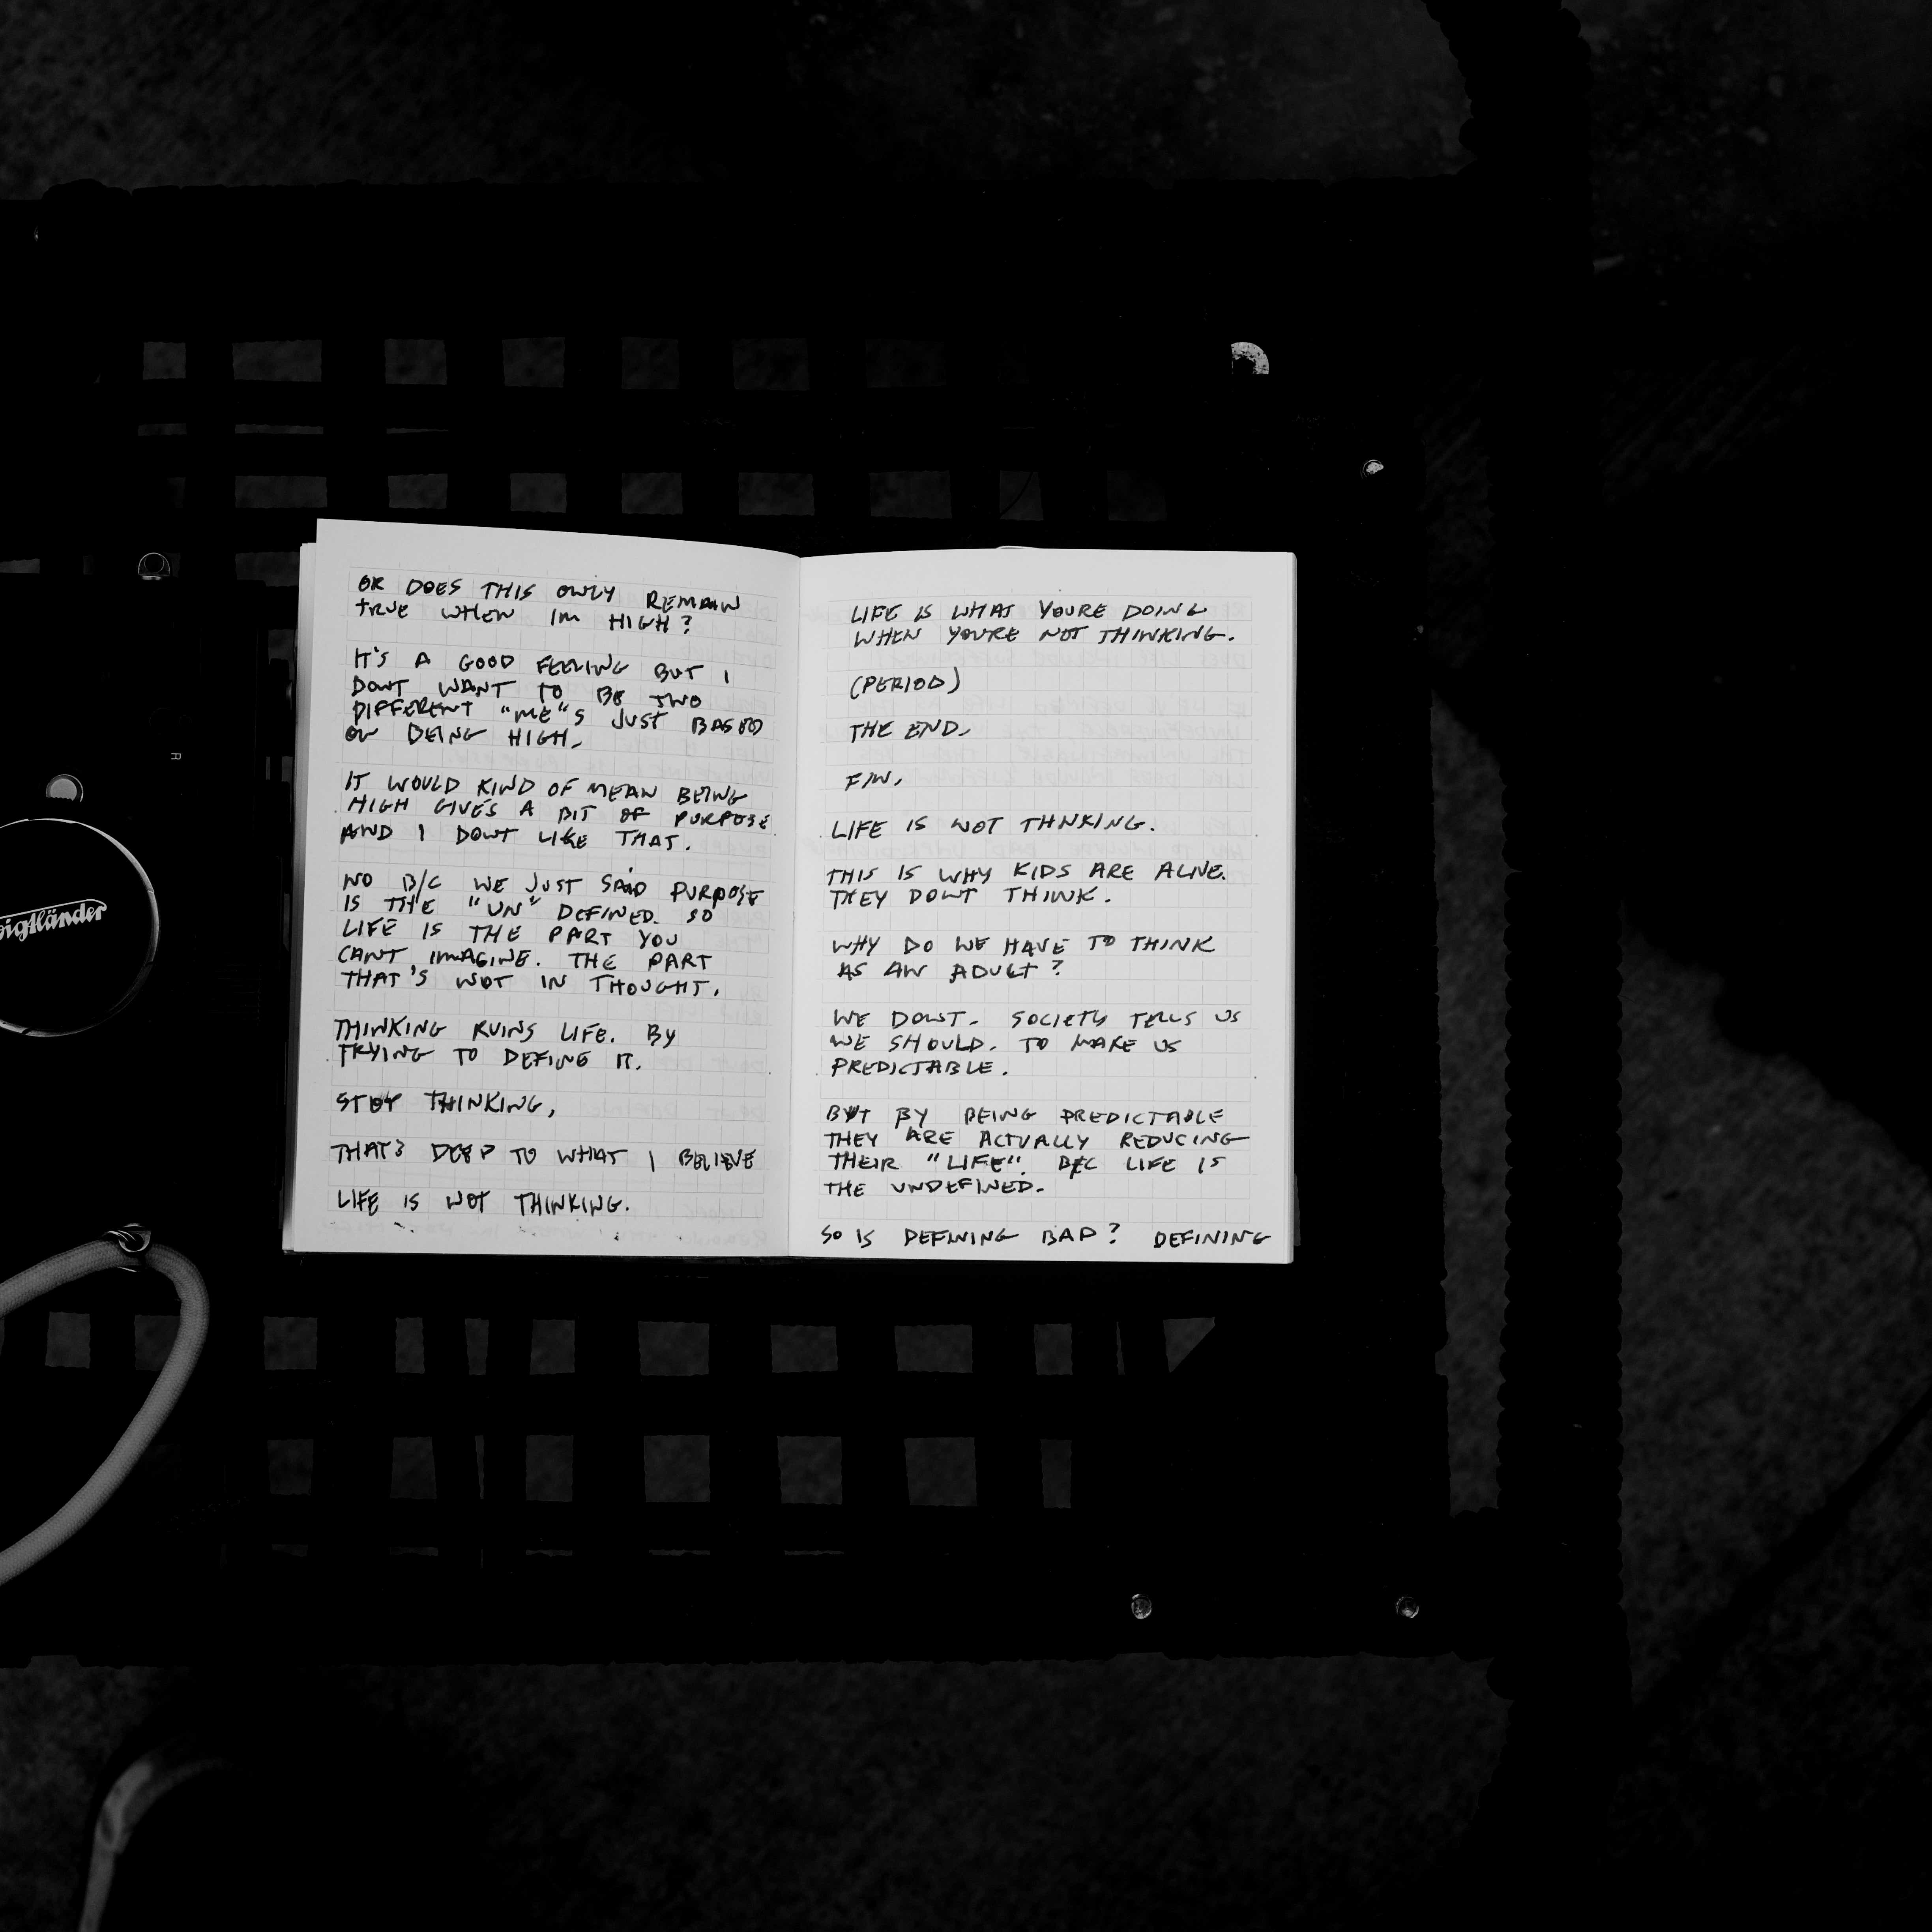 OR DOES THIS ONLY REMAIN
TRUE WHEN IM HIGH?
IT'S A GOOD FEELING BUT I
DONT WANT TO BE TWO
DIFFERENT "ME"S JUST BASED
ON BEING HIGH.
IT WOULD KIND OF MEAN BEING
HIGH GIVES A BIT OF PURPOSE
AND I DONT LIKE THAT.
NO B/C WE JUST SAID PURPOSE
IS THE "UN" DEFINED. SO
LIFE IS THE PART YOU
CANT IMAGINE. THE PART
THAT'S NOT IN THOUGHT.
THINKING RUINS LIFE. BY
TRYING TO DEFINE IT.
STOP THINKING.
THAT'S DEEP TO WHAT I BELIEVE
LIFE IS NOT THINKING.
LIFE IS WHAT YOURE DOING
WHEN YOU'RE NOT THINKING.
(PERIOD)
THE END.
FIN.
LIFE IS NOT THNKING.
THIS IS WHY KIDS ARE ALIVE.
THEY DONT THINK.
WHY DO WE HAVE TO THINK
AS AN ADULT?
WE DONT. SOCIETY TELLS US
WE SHOULD. TO MAKE US
PREDICTABLE.
BUT BY BEING PREDICTABLE
THEY ARE ACTUALLY REDUCING
THEIR "LIFE". B/C LIFE IS
THE UNDEFINED.
SO IS DEFINING BAD? DEFINING
oigtländer
R